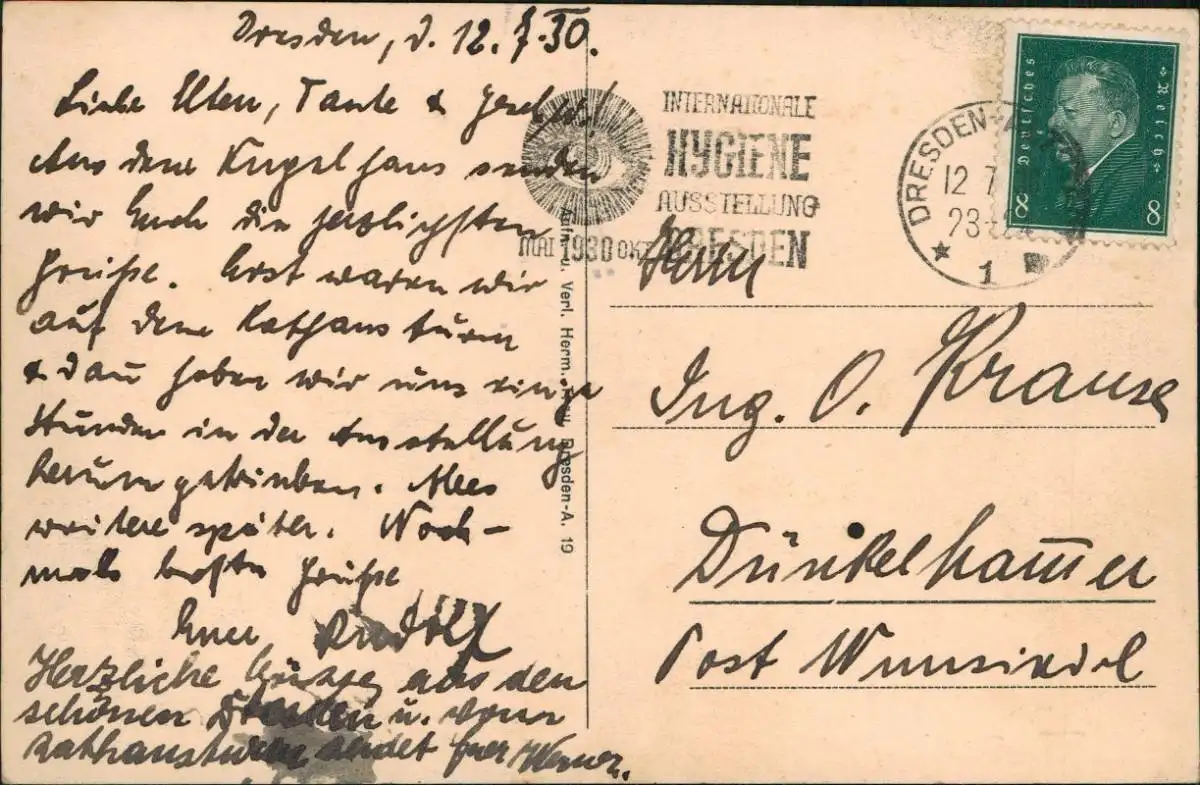 Dresden, d. 12.7.30.
Liebe Elten, Tante &
Aus dem Kugelhaus senden
wir Euch die herzlichsten
Grüße. Erst waren wir
auf dem Rathausturm
& dan haben wir uns einige
Stunden in der Ausstellung
herumgetrieben. Alles
weitere später. Noch-
mals beste Grüße
Euer Rudolf
Herzliche Grüsse aus den
schönen Dresden u. vom
Rathausturm sendet Euer Werner.
INTERNATIONALE
HYGIENE
AUSSTELLUNG
MAI 1930 OKT. DRESDEN
DRESDEN-A
12 7
23-24
1
Deutsches Reich
8 8
Verl. Herm. Dresden-A. 19
Herrn
Ing. O. Krause
Dünkelhammer
Post Wunsiedel